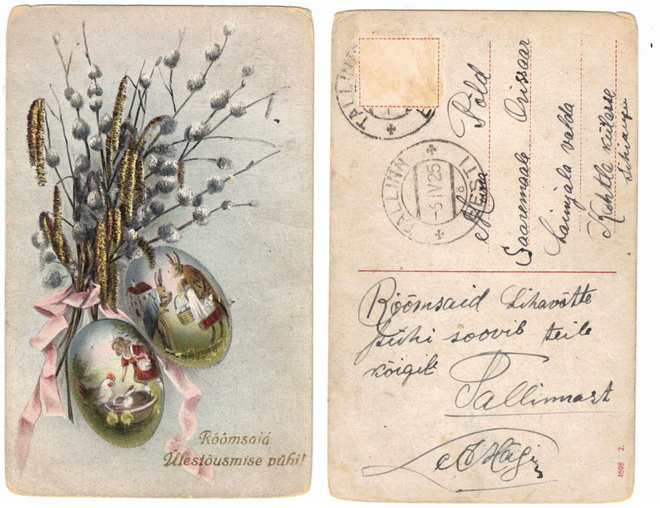 Rõõmsaid
Ülestõusmise pühi!
TALLINN
TALLINN
-5 IV 25
EESTI
Põld
Saaremaale Orissaar
valda
Kehtla külasse
Rõõmsaid Lihavõtte
pühi soovib teile
kõigile
Tallinnast
1698 2.